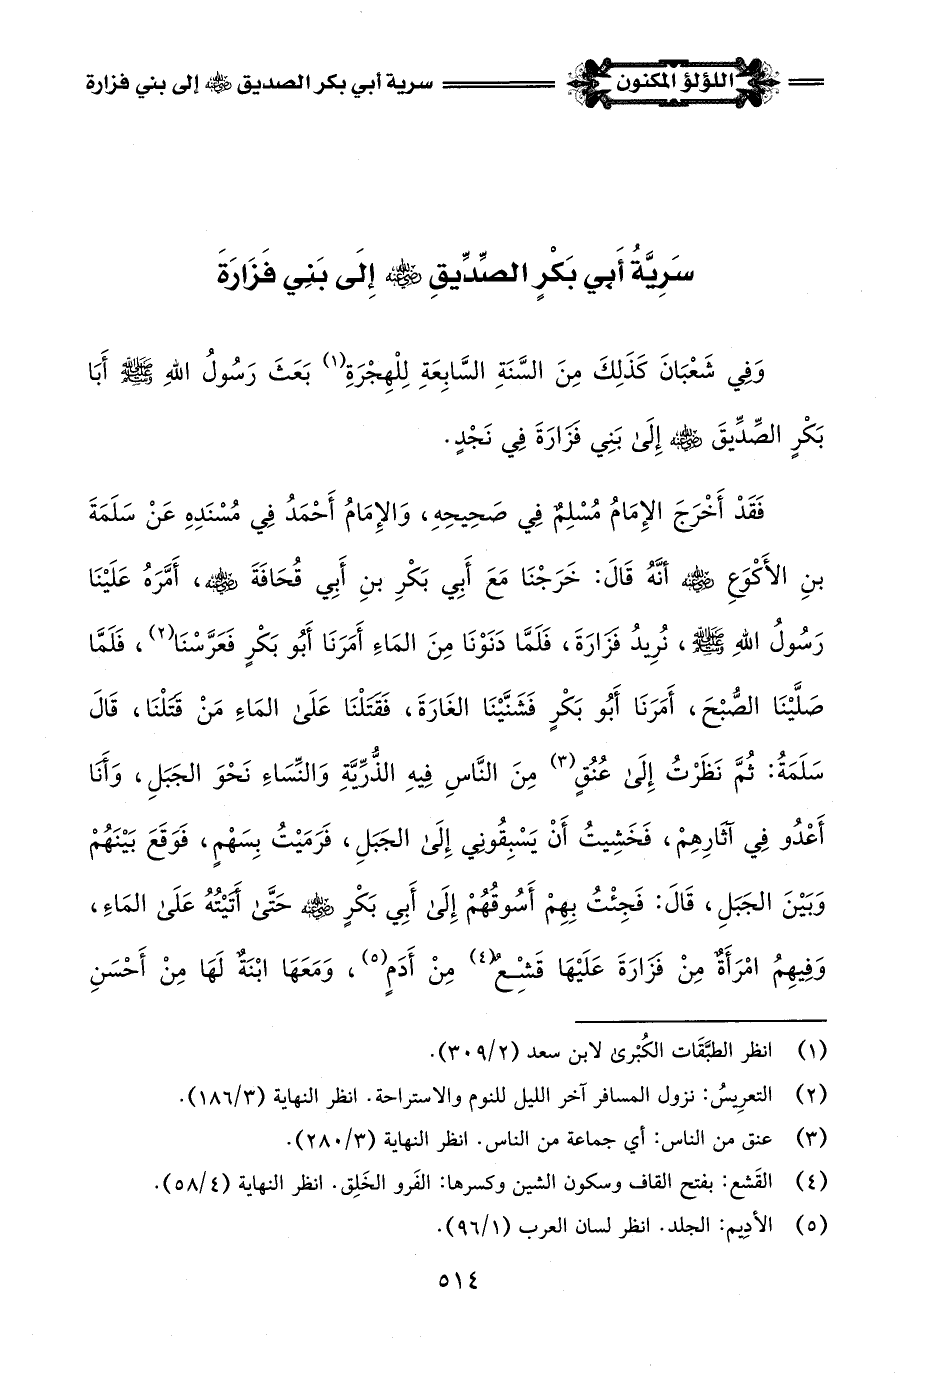 اللؤلؤ المكنون سرية أبي بكر الصديق رضي الله عنه إلى بني فزارة
سَرِيَّةُ أَبِي بَكْرٍ الصِّدِّيقِ رضي الله عنه إِلَى بَنِي فَزَارَةَ
وَفِي شَعْبَانَ كَذَلِكَ مِنَ السَّنَةِ السَّابِعَةِ لِلْهِجْرَةِ(١) بَعَثَ رَسُولُ اللهِ ﷺ أَبَا
بَكْرٍ الصِّدِّيقَ رضي الله عنه إِلَىٰ بَنِي فَزَارَةَ فِي نَجْدٍ.
فَقَدْ أَخْرَجَ الإِمَامُ مُسْلِمٌ فِي صَحِيحِهِ، وَالإِمَامُ أَحْمَدُ فِي مُسْنَدِهِ عَنْ سَلَمَةَ
بنِ الأَكْوَعِ رضي الله عنه أنَّهُ قَالَ: خَرَجْنَا مَعَ أَبِي بَكْرِ بنِ أَبِي قُحَافَةَ رضي الله عنه، أَمَّرَهُ عَلَيْنَا
رَسُولُ اللهِ ﷺ، نُرِيدُ فَزَارَةَ، فَلَمَّا دَنَوْنَا مِنَ المَاءِ أَمَرَنَا أَبُو بَكْرٍ فَعَرَّسْنَا(٢)، فَلَمَّا
صَلَّيْنَا الصُّبْحَ، أَمَرَنَا أَبُو بَكْرٍ فَشَنَّيْنَا الغَارَةَ، فَقَتَلْنَا عَلَىٰ المَاءِ مَنْ قَتَلْنَا، قَالَ
سَلَمَةُ: ثُمَّ نَظَرْتُ إِلَىٰ عُنُقٍ(٣) مِنَ النَّاسِ فِيهِ الذُّرِّيَّةِ وَالنِّسَاءِ نَحْوَ الجَبَلِ، وَأَنَا
أَعْدُو فِي آثَارِهِمْ، فَخَشِيتُ أَنْ يَسْبِقُونِي إِلَىٰ الجَبَلِ، فَرَمَيْتُ بِسَهْمٍ، فَوَقَعَ بَيْنَهُمْ
وَبَيْنَ الجَبَلِ، قَالَ: فَجِئْتُ بِهِمْ أَسُوقُهُمْ إِلَىٰ أَبِي بَكْرٍ رضي الله عنه حَتَّىٰ أَتَيْتُهُ عَلَىٰ المَاءِ،
وَفِيهِمُ امْرَأَةٌ مِنْ فَزَارَةَ عَلَيْهَا قَشْعٌ(٤) مِنْ أَدَمٍ(٥)، وَمَعَهَا ابْنَةٌ لَهَا مِنْ أَحْسَنِ
(١) انظر الطبَّقَات الكُبْرىٰ لابن سعد (٣٠٩/٢).
(٢) التعريسُ: نزول المسافر آخر الليل للنوم والاستراحة. انظر النهاية (١٨٦/٣).
(٣) عنق من الناس: أي جماعة من الناس. انظر النهاية (٢٨٠/٣).
(٤) القَشع: بفتح القاف وسكون الشين وكسرها: الفَرو الخَلِق. انظر النهاية (٥٨/٤).
(٥) الأدِيم: الجلد. انظر لسان العرب (٩٦/١).
٥١٤